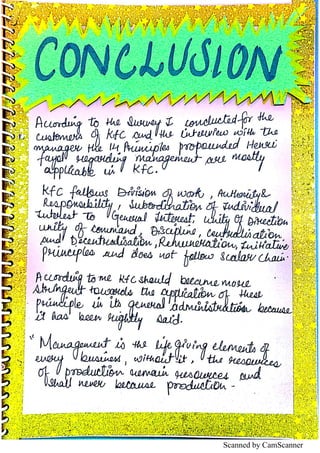 CONCLUSION
According to the survey I conducted for the
customers of KFC and the interview with the
manager the 14 Principles propounded Henri
fayol regarding management are mostly
applicable in KFC.
KFC follows Division of work, Authority &
Responsibility, Subordination of Individual
Interest to General Interest, Unity Of Direction
unity of command, Discipline, centralisation
and Decentralisation, Remuneration, Initiative
principles and does not follow Scalar Chain.
According to me KFC should become more
stringent towards the application of these
principle in its general administration because
it has been rightly said.
"Management is the life giving elements of
every business, without it, the resources
of production remain resources and
shall never because production -
Scanned by CamScanner